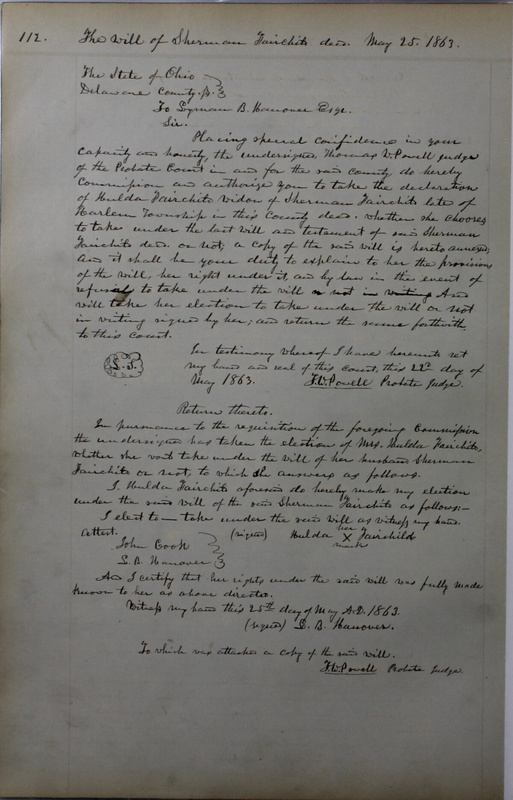 112. The Will of Sherman Fairchits decd. May 25. 1863.
The State of Ohio
Delaware County ss.
To Lyman B. Hanover Esqr.
Sir.
Placing special confidence in your
capacity and honesty, the undersigned Thomas W. Powell Judge
of the Probate Court in and for the said county do hereby
Commission and authorize you to take the declaration
of Hulda Fairchits widow of Sherman Fairchits late of
Harlem Township in this County decd. whether she chooses
to take under the last will and testament of said Sherman
Fairchits decd. or not; a copy of the said will is hereto annexed;
And it shall be your duty to explain to her the provision
of the will, her right under it, and by law in the event of
refusal to take under the will or not in writing And
will take her election to take under the will or not
in writing signed by her; and return the same forthwith
to this court.
In testimony whereof I have hereunto set
L.S. my hand and seal of this court, this 22d day of
May 1863. T.W. Powell Probate Judge.
Return thereto.
In pursuance to the requisition of the foregoing Commission
the undersigned has taken the election of Mrs. Hulda Fairchits,
whether she will take under the will of her husband Sherman
Fairchits or not, to which she answers as follows.
I, Hulda Fairchits aforesaid do hereby make my election
under the said will of the said Sherman Fairchits as follows:—
I elect to take under the said will as witness my hand.
Attest. (signed) Hulda her X mark Fairchild
John Cook
L. B. Hanover
And I certify that her rights under the said will was fully made
known to her as above directed.
Witness my hand this 25th day of May A.D. 1863.
(signed) L. B. Hanover.
To which was attached a copy of the said will.
T.W. Powell Probate Judge